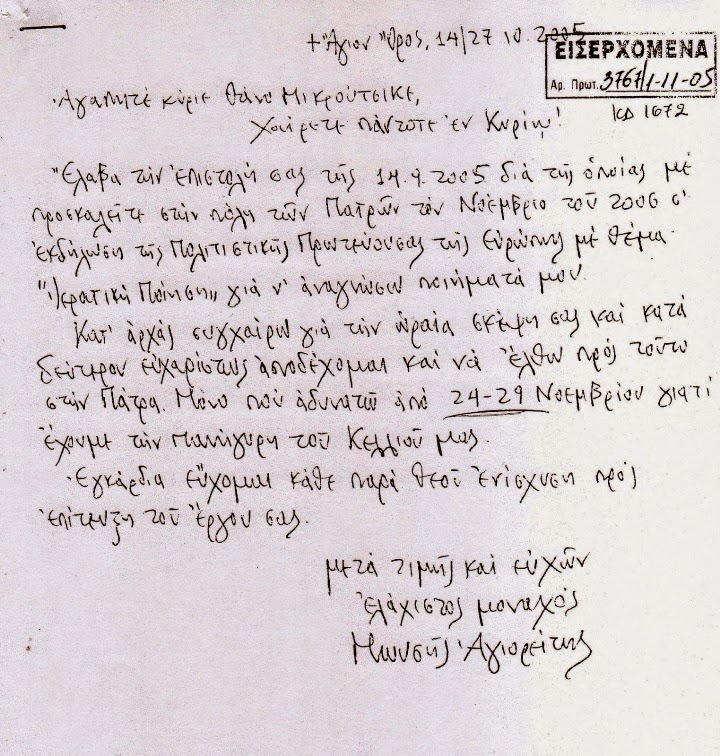 + Ἅγιον Ὄρος, 14/27 10. 2005
ΕΙΣΕΡΧΟΜΕΝΑ
Αρ. Πρωτ. 3767/1-11-05
ΚΔ 1672
Ἀγαπητέ κύριε Θάνο Μικρούτσικε,
Χαίρετε πάντοτε ἐν Κυρίῳ!
Ἔλαβα τήν ἐπιστολή σας τῆς 14.9.2005 διά τῆς ὁποίας μέ
προσκαλεῖτε στήν πόλη τῶν Πατρῶν τόν Νοέμβριο τοῦ 2006 σ'
ἐκδήλωση τῆς Πολιτιστικῆς Πρωτεύουσας τῆς Εὐρώπης μέ θέμα
"Ἱερατική Ποίηση" γιά ν' ἀναγνώσω ποιήματά μου.
Κατ' ἀρχάς συγχαίρω γιά τήν ὡραία σκέψη σας καί κατά
δεύτερον εὐχαρίστως ἀποδέχομαι καί νά ἔλθω πρός τοῦτο
στήν Πάτρα. Μόνο πού ἀδυνατῶ ἀπό 24-29 Νοεμβρίου γιατί
ἔχουμε τήν πανήγυρη τοῦ Κελλιοῦ μας.
Ἐγκάρδια εὔχομαι κάθε παρά Θεοῦ ἐνίσχυση πρός
ἐπίτευξη τοῦ ἔργου σας.
μετά τιμῆς καί εὐχῶν
ἐλάχιστος μοναχός
Μωυσῆς Ἁγιορείτης